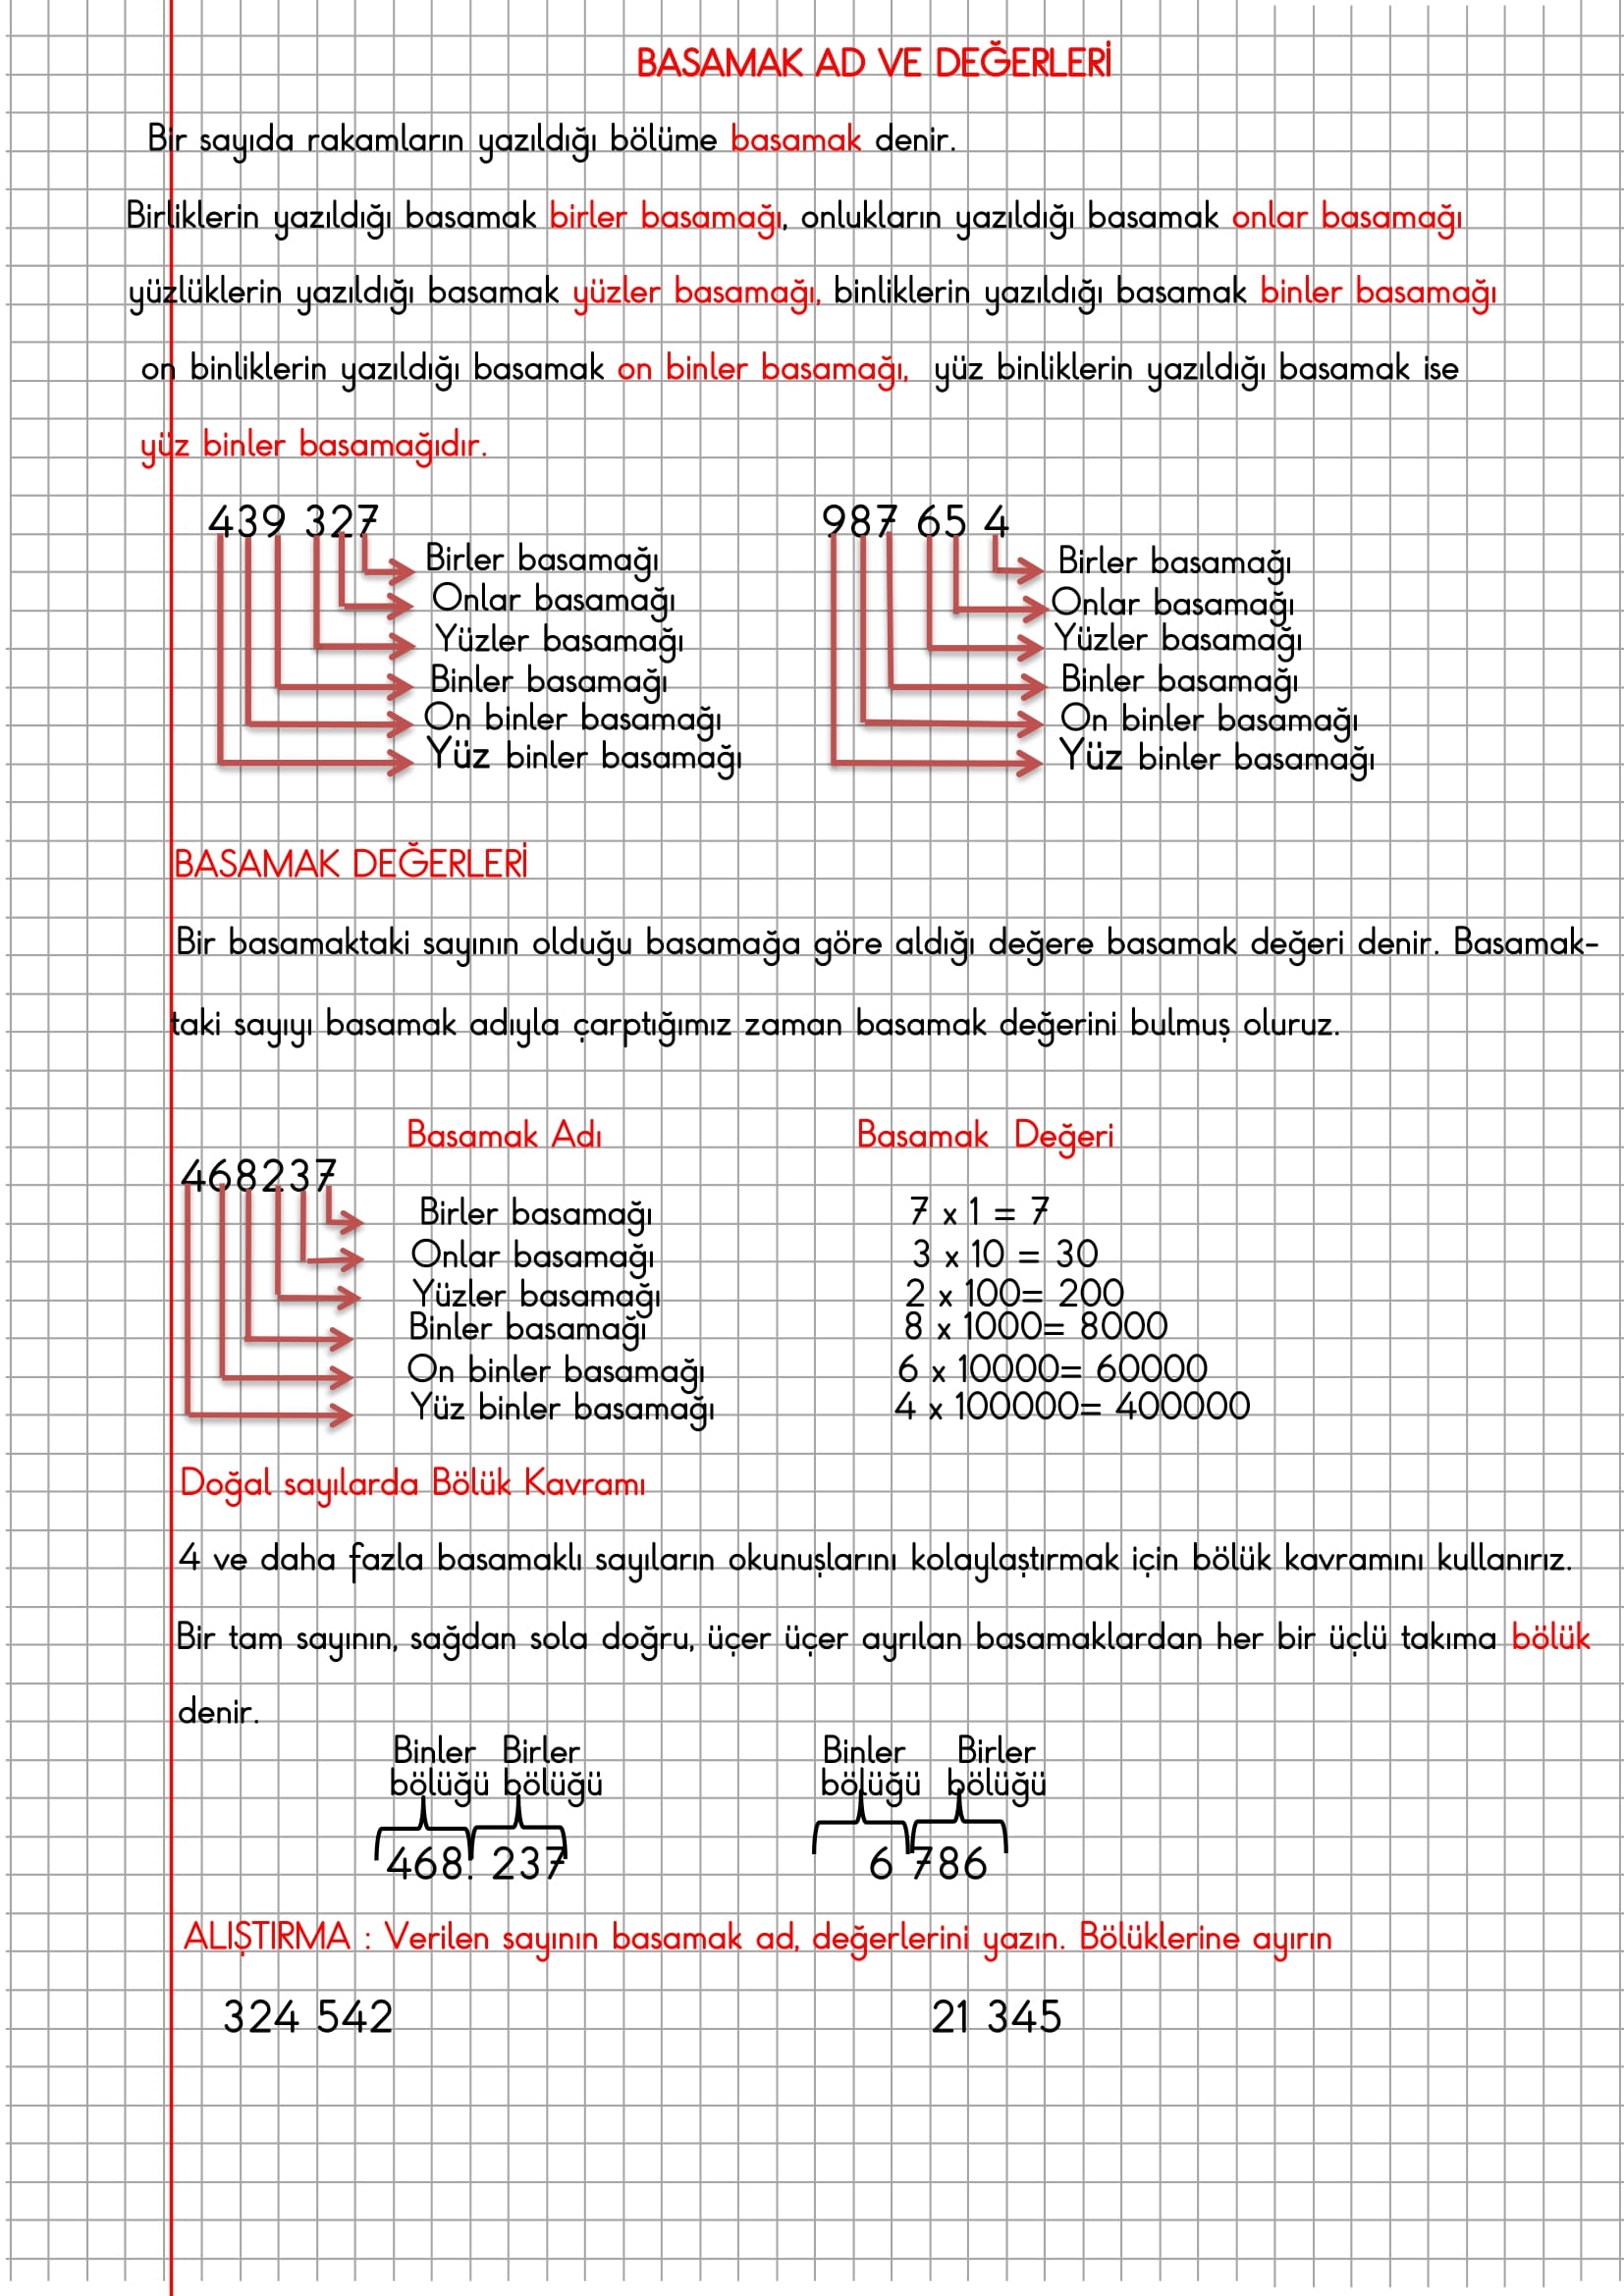 BASAMAK AD VE DEĞERLERİ
Bir sayıda rakamların yazıldığı bölüme basamak denir.
Birliklerin yazıldığı basamak birler basamağı, onlukların yazıldığı basamak onlar basamağı
yüzlüklerin yazıldığı basamak yüzler basamağı, binliklerin yazıldığı basamak binler basamağı
on binliklerin yazıldığı basamak on binler basamağı, yüz binliklerin yazıldığı basamak ise
yüz binler basamağıdır.
439 327
Birler basamağı
Onlar basamağı
Yüzler basamağı
Binler basamağı
On binler basamağı
Yüz binler basamağı
987 65 4
Birler basamağı
Onlar basamağı
Yüzler basamağı
Binler basamağı
On binler basamağı
Yüz binler basamağı
BASAMAK DEĞERLERİ
Bir basamaktaki sayının olduğu basamağa göre aldığı değere basamak değeri denir. Basamak-
taki sayıyı basamak adıyla çarptığımız zaman basamak değerini bulmuş oluruz.
Basamak Adı Basamak Değeri
468237
Birler basamağı 7 x 1 = 7
Onlar basamağı 3 x 10 = 30
Yüzler basamağı 2 x 100= 200
Binler basamağı 8 x 1000= 8000
On binler basamağı 6 x 10000= 60000
Yüz binler basamağı 4 x 100000= 400000
Doğal sayılarda Bölük Kavramı
4 ve daha fazla basamaklı sayıların okunuşlarını kolaylaştırmak için bölük kavramını kullanırız.
Bir tam sayının, sağdan sola doğru, üçer üçer ayrılan basamaklardan her bir üçlü takıma bölük
denir.
Binler Birler Binler Birler
bölüğü bölüğü bölüğü bölüğü
468. 237 6 786
ALIŞTIRMA : Verilen sayının basamak ad, değerlerini yazın. Bölüklerine ayırın
324 542 21 345